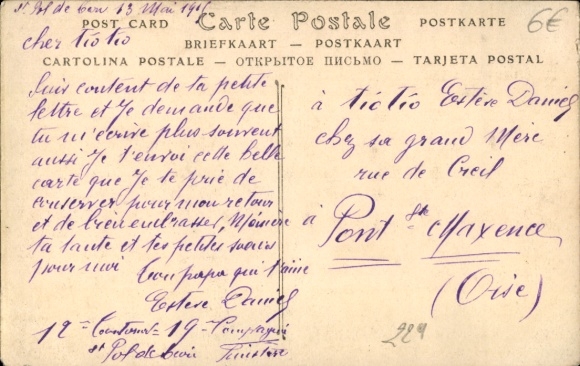 St Pol de Leon 13 Mai 1916
6€
POST CARD Carte Postale POSTKARTE
BRIEFKAART — POSTKAART
CARTOLINA POSTALE — ОТКРЫТОЕ ПИСЬМО — TARJETA POSTAL
cher tiotio
Suis content de ta petite
lettre et Je demande que
tu m'écrive plus souvent
aussi Je t'envoi cette belle
carte que Je te prie de
conserver pour mon retour
et de bien embrasser, Mémère
ta tante et tes petites soeurs
pour moi
Ton papa qui t'aime
Estève Daniel
19 Compagnie
St Pol de Leon Finistère
à tiotio Estève Daniel
chez sa grand Mère
rue de Creil
à Pont Ste Maxence
(Oise)
229